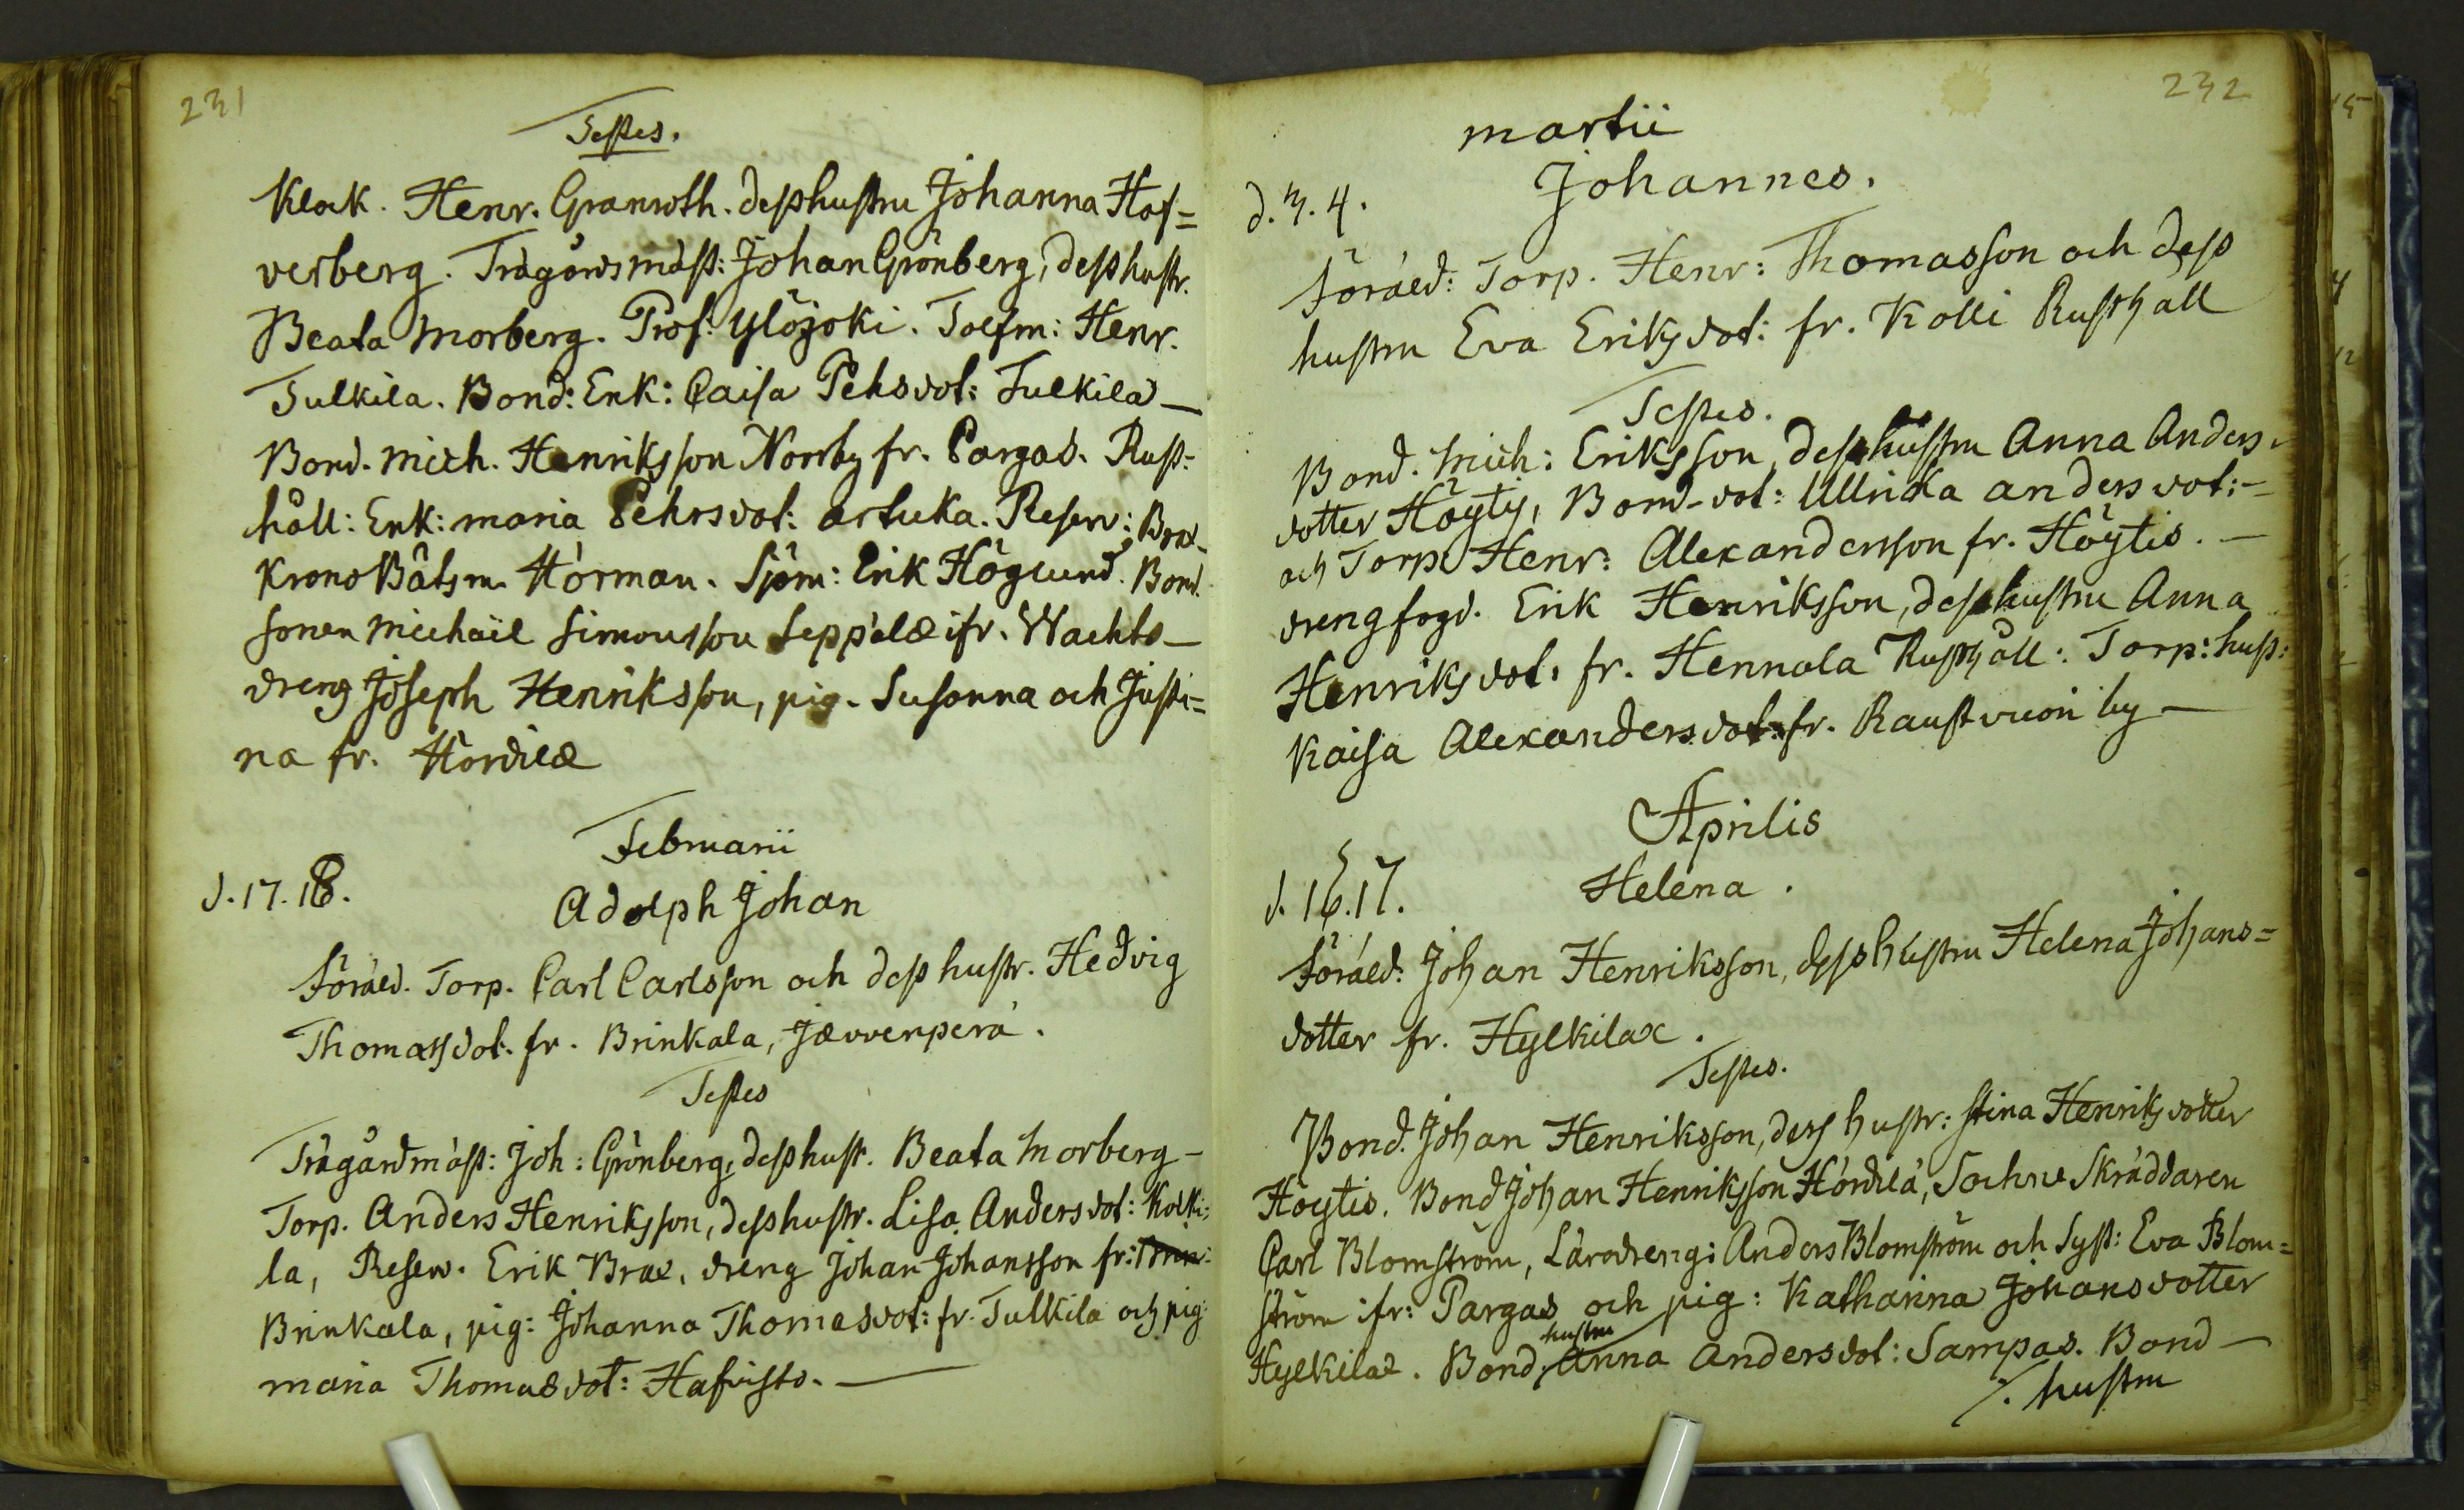 231
Testes.
Klock. Henr. Granroth. dess hustru Johanna Haf=
verberg. Trägårdsmäst: Johan Grönberg, dess hustr.
Beata Morberg. Prof: Ylöjoki. Tolfm: Henr.
Tulkila. Bond: Enk: Caisa Pehsdot: Tulkila —
Bond. Mich. Henriksson Norrby fr. Pargas. Rust-
håll: Enk: Maria Pehrsdot: Artuka. Reserv: Brax-
Krono Båtsm. Hörman. Sjöm: Erik Höglund. Bond.
sonen Michaël Simonsson Seppälæ ifr. Wachto —
dreng Joseph Henriksson, pig. Susanna och Justi=
na fr. Hördilæ
Februarii
d. 17. 18.
Adolph Johan
Föräld. Torp. Carl Carlsson och dess hustr. Hedvig
Thomasdot: fr. Brinkala, Jævvenperä.
Testes
Trägårdmäst: Joh: Grönberg, dess hustr. Beata Morberg –
Torp. Anders Henriksson, dess hustr. Lisa Andersdot: Koiki-
la, Reserv. Erik Brax, dreng Johan Johansson fr:
Brinkala, pig: Johanna Thomasdot: fr. Tulkila och pig:
Maria Thomasdot: Hafvisto. —
232
Martii
d. 3. 4.
Johannes.
Föräld: Torp. Henr: Thomasson och dess
hustru Eva Eriksdot: fr. Kolli Rusthåll
Testes.
Bond. Mich: Eriksson, dess hustru Anna Anders-
dotter Höyty, Bond-dot: Ullrika Andersdot: –
och Torp. Henr: Alexandersson fr. Höytis. —
drengfogd. Erik Henriksson, dess hustru Anna
Henriksdot: fr. Hennala Rusthåll: Torp: hust:
Kaisa Alexandersdot: fr. Raustvuori by —
Aprilis
d. 16. 17.
Helena.
Föräld: Johan Henriksson, dess hustru Helena Johans=
dotter fr. Hylkilax.
Testes.
Bond. Johan Henriksson, dess hustr: Stina Henriksdotter
Höytis. Bond Johan Henriksson Hördilä, Sochne Skräddaren
Carl Blomström, Lärodreng: Anders Blomström och Syst: Eva Blom=
ström ifr: Pargas och pig: Katharina Johansdotter
Hylkilax. Bond, hustru Anna Andersdot: Sampas. Bond —
/. hustru